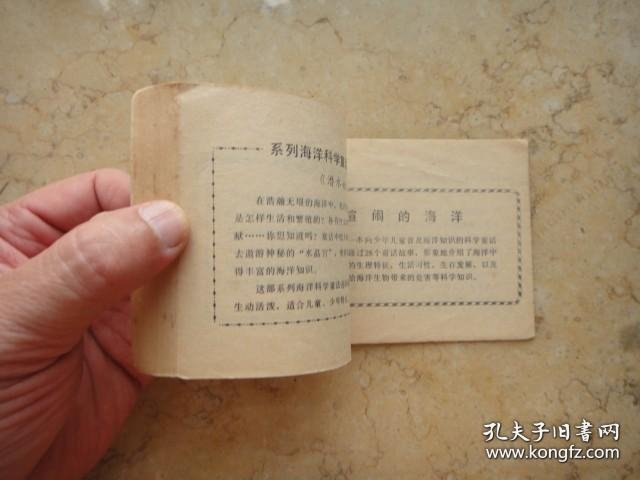 系列海洋科学童
《潜水
在浩瀚无垠的海洋中，
是怎样生活和繁殖的？各有什
献……你想知道吗？童话中
去遨游神秘的“水晶宫”，
得丰富的海洋知识。
这部系列海洋科学童话
生动活泼，适合儿童、少年
喧闹的海洋
一本向少年儿童普及海洋知识的科学童话
通过28个童话故事，形象地介绍了海洋中
的生理特征、生活习性、生存发展，以及
给海洋生物带来的危害等科学知识。
孔夫子旧书网
www.kongfz.com